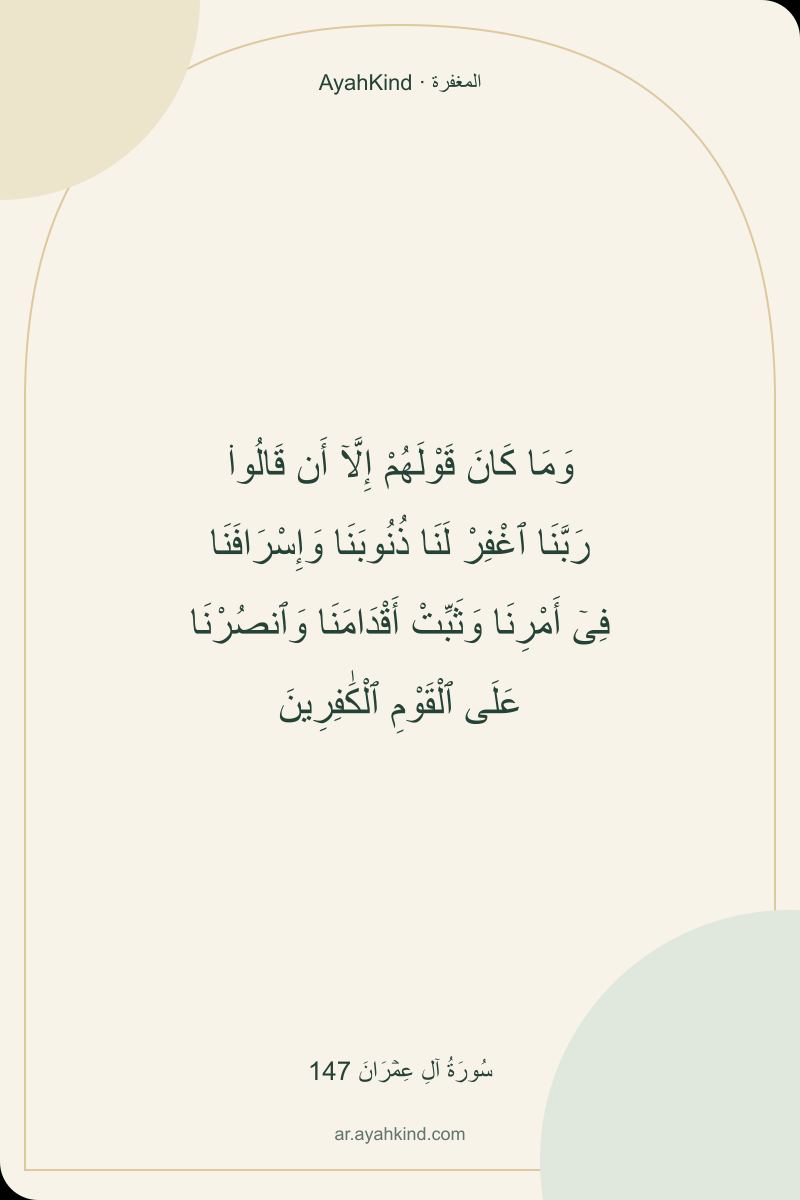 AyahKind · المغفرة
وَمَا كَانَ قَوْلَهُمْ إِلَّآ أَن قَالُوا۟
رَبَّنَا ٱغْفِرْ لَنَا ذُنُوبَنَا وَإِسْرَافَنَا
فِىٓ أَمْرِنَا وَثَبِّتْ أَقْدَامَنَا وَٱنصُرْنَا
عَلَى ٱلْقَوْمِ ٱلْكَٰفِرِينَ
سُورَةُ آلِ عِمۡرَانَ 147
ar.ayahkind.com